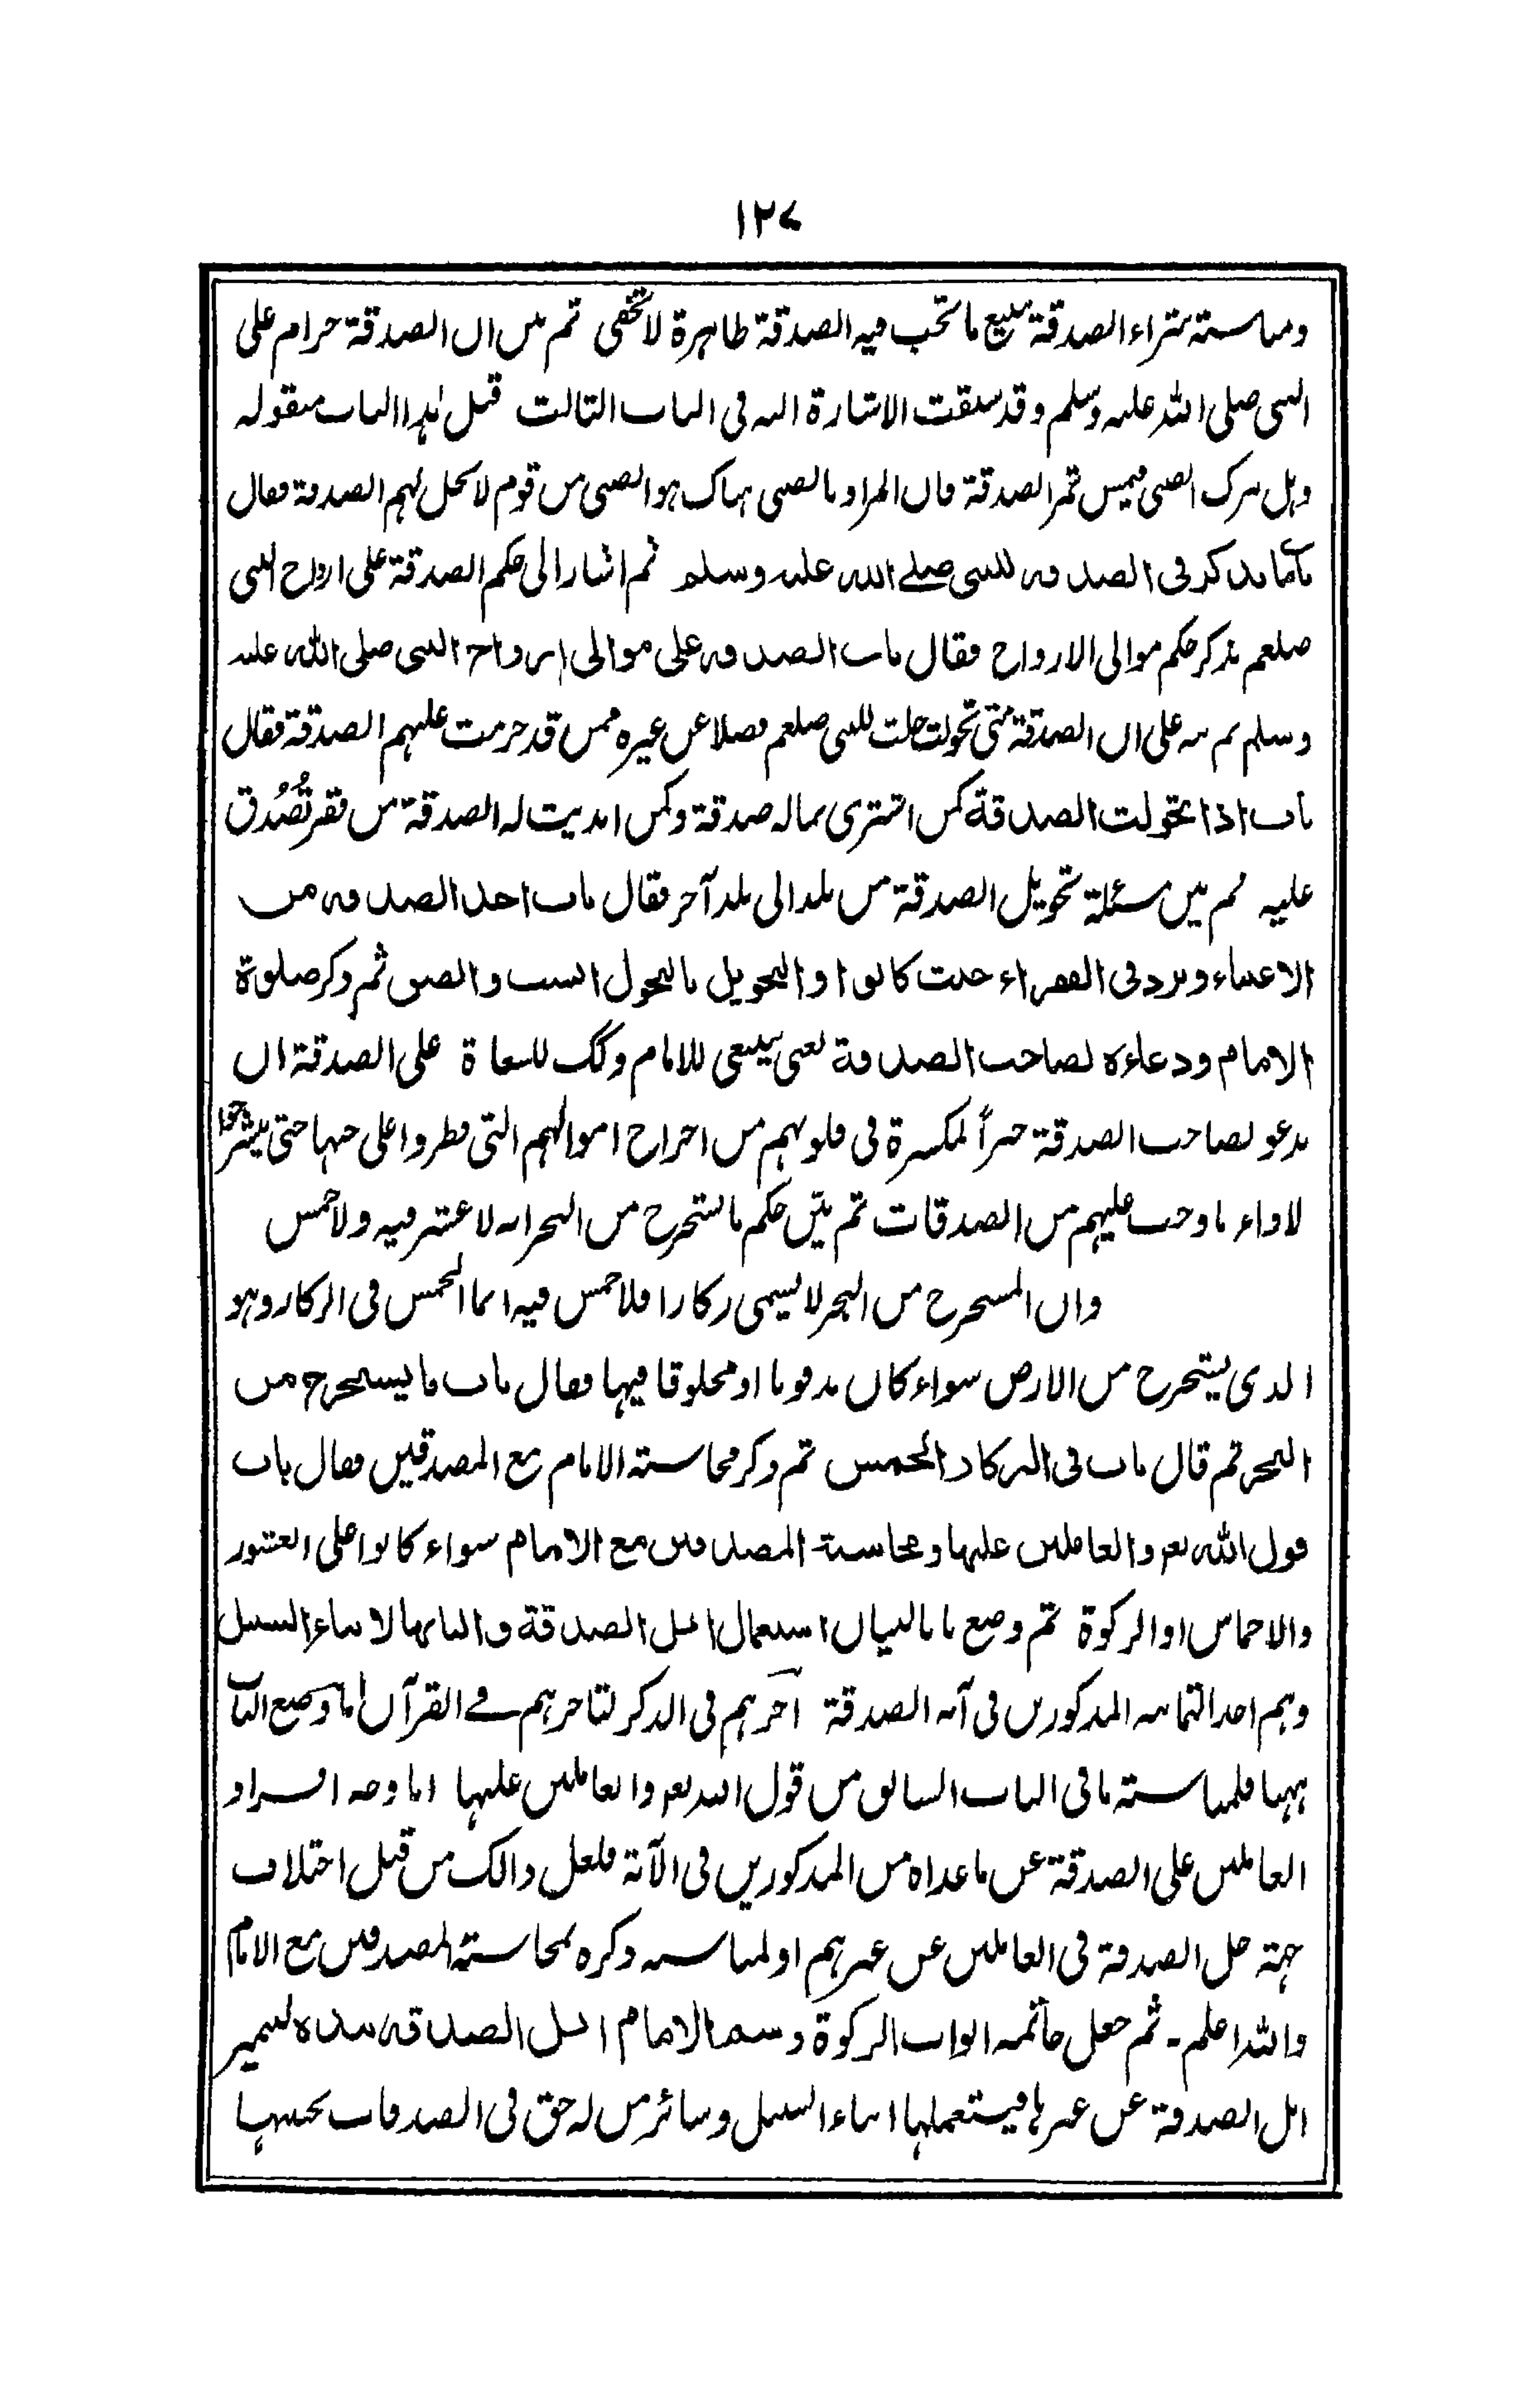 ١٢٧
ومناسبته شراء الصدقة ببيع ما تجب فيه الصدقة ظاهرة لا تخفى ثم بين ان الصدقة حرام على
النبي صلى الله عليه وسلم وقد سبقت الاشارة اليه في الباب الثالث قبل هذا الباب بقوله
وهل يترك الصبي فيمس تمر الصدقة فان المراد بالصبي هناك هو الصبي من قوم لا تحل لهم الصدقة فقال
باب ما يذكر في الصدقة للنبي صلى الله عليه وسلم ثم اشار الى حكم الصدقة على ازواج النبي
صلعم بذكر حكم موالى الازواج فقال باب الصدقة على موالى ازواج النبي صلى الله عليه
وسلم ثم نبه على ان الصدقة متى تحولت حلت للنبي صلعم فضلا عن غيره ممن قد حرمت عليهم الصدقة فقال
باب اذا تحولت الصدقة كمن اشترى بماله صدقة وكمن اهديت له الصدقة من فقير تُصُدق
عليه ثم بين مسئلة تحويل الصدقة من بلد الى بلد آخر فقال باب اخذ الصدقة من
الاغنياء وترد في الفقراء حيث كانوا والتحويل بالتحول انسب والصق ثم ذكر صلوة
الامام ودعاءه لصاحب الصدقة يعني ينبغي للامام وكذلك للسعاة على الصدقة ان
يدعو لصاحب الصدقة جبراً لكسرة في قلوبهم من اخراج اموالهم التي فطروا على حبها حتى ينشرحوا
لاداء ما وجب عليهم من الصدقات ثم بيّن حكم ما استخرج من البحر انه لا عشر فيه ولا خمس
وان المستخرج من البحر لا يسمى ركازا فلا خمس فيه انما الخمس في الركاز وهو
الذي يستخرج من الارض سواء كان مدفونا او مخلوقا فيها فقال باب ما يستخرج من
البحر ثم قال باب في الركاز الخمس ثم ذكر محاسبة الامام مع المصدقين فقال باب
قول الله تعـ والعاملين عليها ومحاسبة المصدقين مع الامام سواء كانوا على العشور
والاخماس او الزكوة ثم وضع بابا لبيان استعمال ابل الصدقة والبانها لابناء السبيل
وهم احد الثمانية المذكورين في آية الصدقة آخرهم في الذكر لتاخرهم في القرآن اما وضع الباب
ههنا فلمناسبته ما في الباب السابق من قول الله تعـ والعاملين عليها اما وجه افراد
العاملين على الصدقة عن ما عداه من المذكورين في الآية فلعل ذالك من قبل اختلاف
جهة حل الصدقة في العاملين عن غيرهم او لمناسبة ذكره بمحاسبة المصدقين مع الامام
والله اعلم - ثم جعل خاتمة ابواب الزكوة وسم الامام ابل الصدقة بيده لتميز
ابل الصدقة عن غيرها فيستعملها ابناء السبيل وسائر من له حق في الصدقات بحسبها